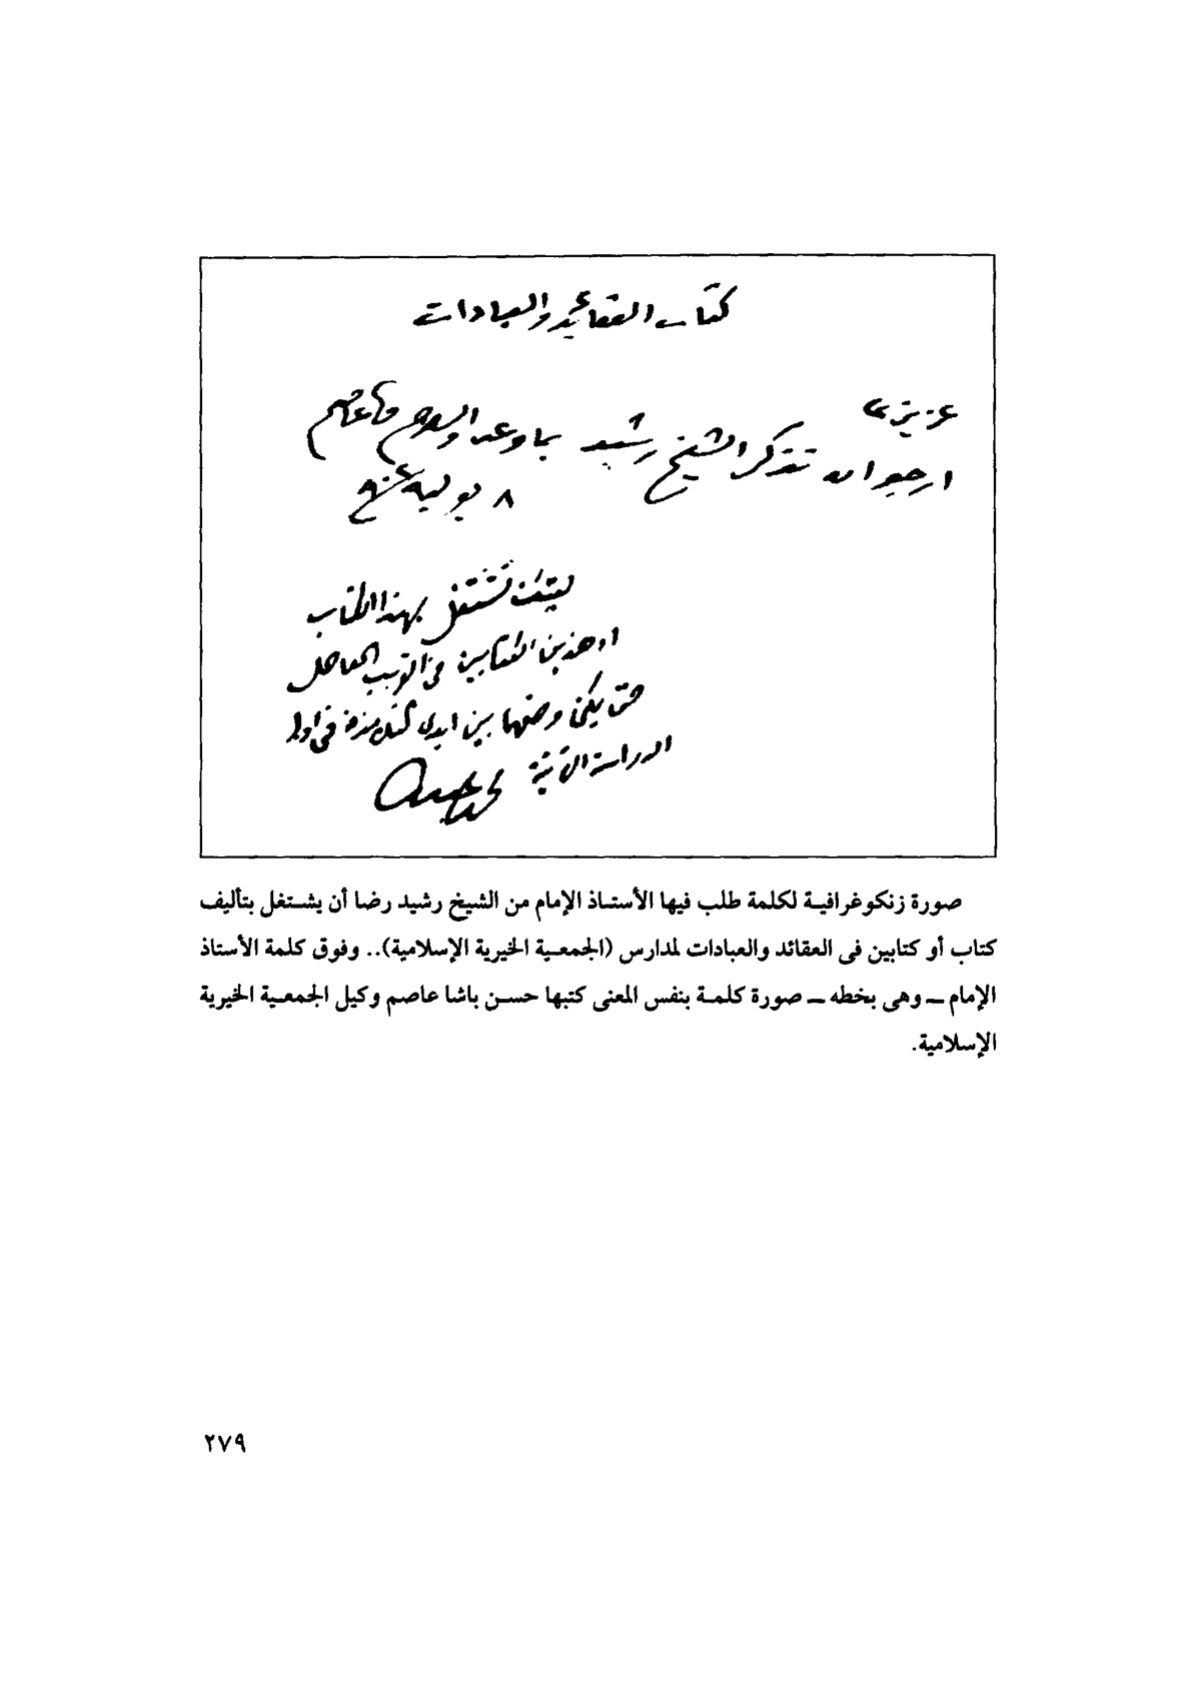 كتاب العقائد والعبادات
عزيزى
ارجو ان تذكر الشيخ رشيد بما وعد والسلام عاصم
٨ يوليه
ليتك تشتغل بهذا الكتاب
او هذين الكتابين فى القريب العاجل
حتى يمكن وضعها بين ايدى التلامذة فى اول
الدراسة الآتية محمد عبده
صورة زنكوغرافية لكلمة طلب فيها الأستاذ الإمام من الشيخ رشيد رضا أن يشتغل بتأليف
كتاب أو كتابين فى العقائد والعبادات لمدارس (الجمعية الخيرية الإسلامية).. وفوق كلمة الأستاذ
الإمام ــ وهى بخطه ــ صورة كلمة بنفس المعنى كتبها حسن باشا عاصم وكيل الجمعية الخيرية
الإسلامية.
٢٧٩